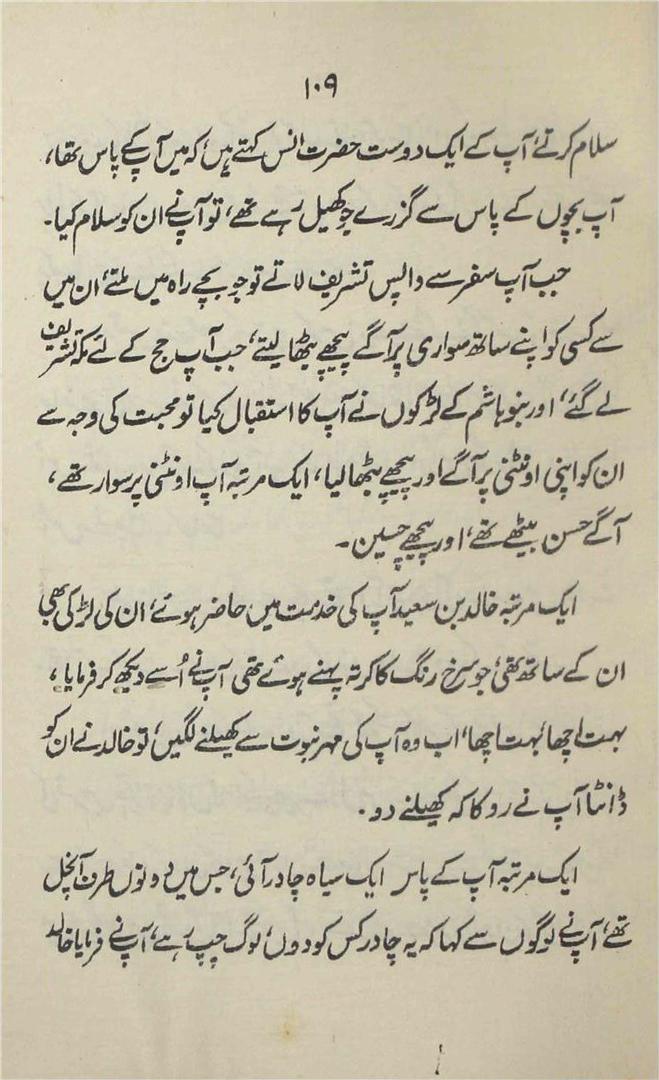 ۱۰۹
سلام کرتے، آپ کے ایک دوست حضرت انس کہتے ہیں، کہ میں آپ کے پاس تھا،
آپ بچوں کے پاس سے گزرے جو کھیل رہے تھے، تو آپ نے ان کو سلام کیا۔
جب آپ سفر سے واپس تشریف لاتے تو جو بچے راہ میں ملتے، ان میں
سے کسی کو اپنے ساتھ سواری پر آگے پیچھے بیٹھا لیتے، جب آپ حج کے لئے مکہ تشریف
لے گئے، اور بنو ہاشم کے لڑکوں نے آپ کا استقبال کیا تو محبت کی وجہ سے
ان کو اپنی اونٹنی پر آگے اور پیچھے بٹھا لیا، ایک مرتبہ آپ اونٹنی پر سوار تھے،
آگے حسن بیٹھے تھے، اور پیچھے حسین۔
ایک مرتبہ خالد بن سعید آپ کی خدمت میں حاضر ہوئے، ان کی لڑکی بھی
ان کے ساتھ تھی، جو سرخ رنگ کا کرتہ پہنے ہوئے تھی آپ نے اُسے دیکھ کر فرمایا،
بہت اچھا، بہت اچھا، اب وہ آپ کی مہر نبوت سے کھیلنے لگیں، تو خالد نے ان کو
ڈانٹا آپ نے روکا کہ کھیلنے دو۔
ایک مرتبہ آپ کے پاس ایک سیاہ چادر آئی، جس میں دونوں طرف آنچل
تھے، آپ نے لوگوں سے کہا کہ یہ چادر کس کو دوں، لوگ چپ رہے، آپ نے فرمایا خالد